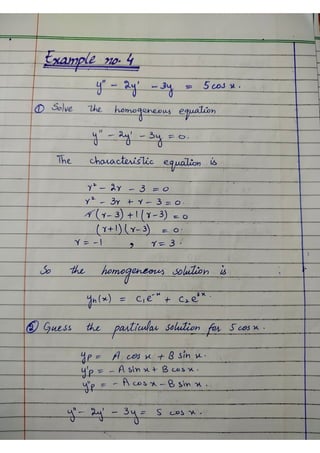 Example no. 4
y'' - 2y' - 3y = 5 cos x.
① Solve the homogeneous equation
y'' - 2y' - 3y = 0.
The characteristic equation is
r² - 2r - 3 = 0
r² - 3r + r - 3 = 0.
r(r-3) + 1(r-3) = 0
(r+1)(r-3) = 0.
r = -1 , r = 3.
So the homogeneous solution is
yh(x) = C₁e⁻ˣ + C₂e³ˣ.
② Guess the particular solution for 5 cos x.
yp = A cos x + B sin x.
y'p = - A sin x + B cos x.
y''p = - A cos x - B sin x.
y'' - 2y' - 3y = 5 cos x.